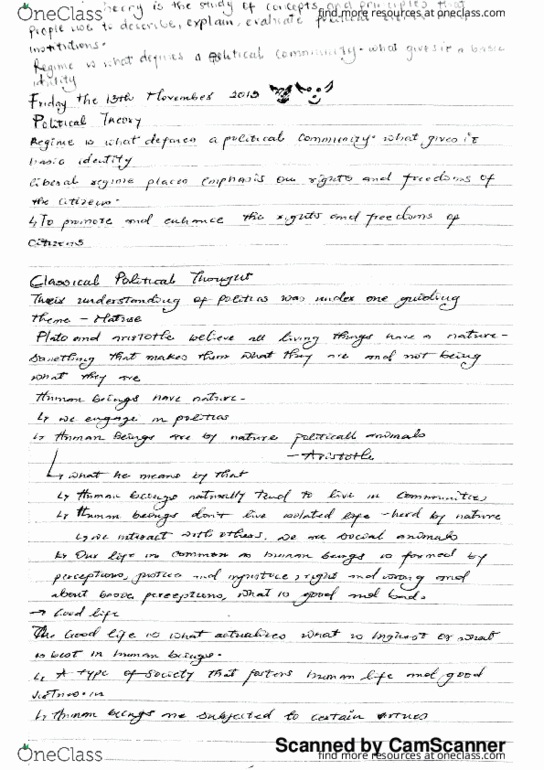 OneClass
find more resources at oneclass.com
theory is the study of concepts and principles that
people use to describe, explain, evaluate political
institutions.
Regime is what defines a political community. what gives it a basic
identity
Friday the 13th November 2015
Political Theory
Regime is what defines a political community. what gives it
basic identity
liberal regime places emphasis on rights and freedoms of
the citizens.
↳ To promote and enhance the rights and freedoms of
citizens
Classical Political Thought
Their understanding of politics was under one guiding
theme - Nature
Plato and Aristotle believe all living things have a nature -
Something that makes them what they are and not being
what they are
Human beings have nature -
↳ we engage in politics
↳ Human Beings are by nature politicall animals
- Aristotle
↳ what he means by that
↳ Human beings naturally tend to live in Communities
↳ Human beings don't live isolated life - herd by nature
↳ we interact with others, we are social animals
↳ Our life in common as human beings is formed by
perceptions, justice and injustice, right and wrong and
about basic perceptions, what is good and bad.
→ Good life
The Good life is what actualizes what is highest or what
is best in human beings.
↳ A type of society that fosters human life and good
↳ Human beings are subjected to certain virtues
Scanned by CamScanner
OneClass
find more resources at oneclass.com